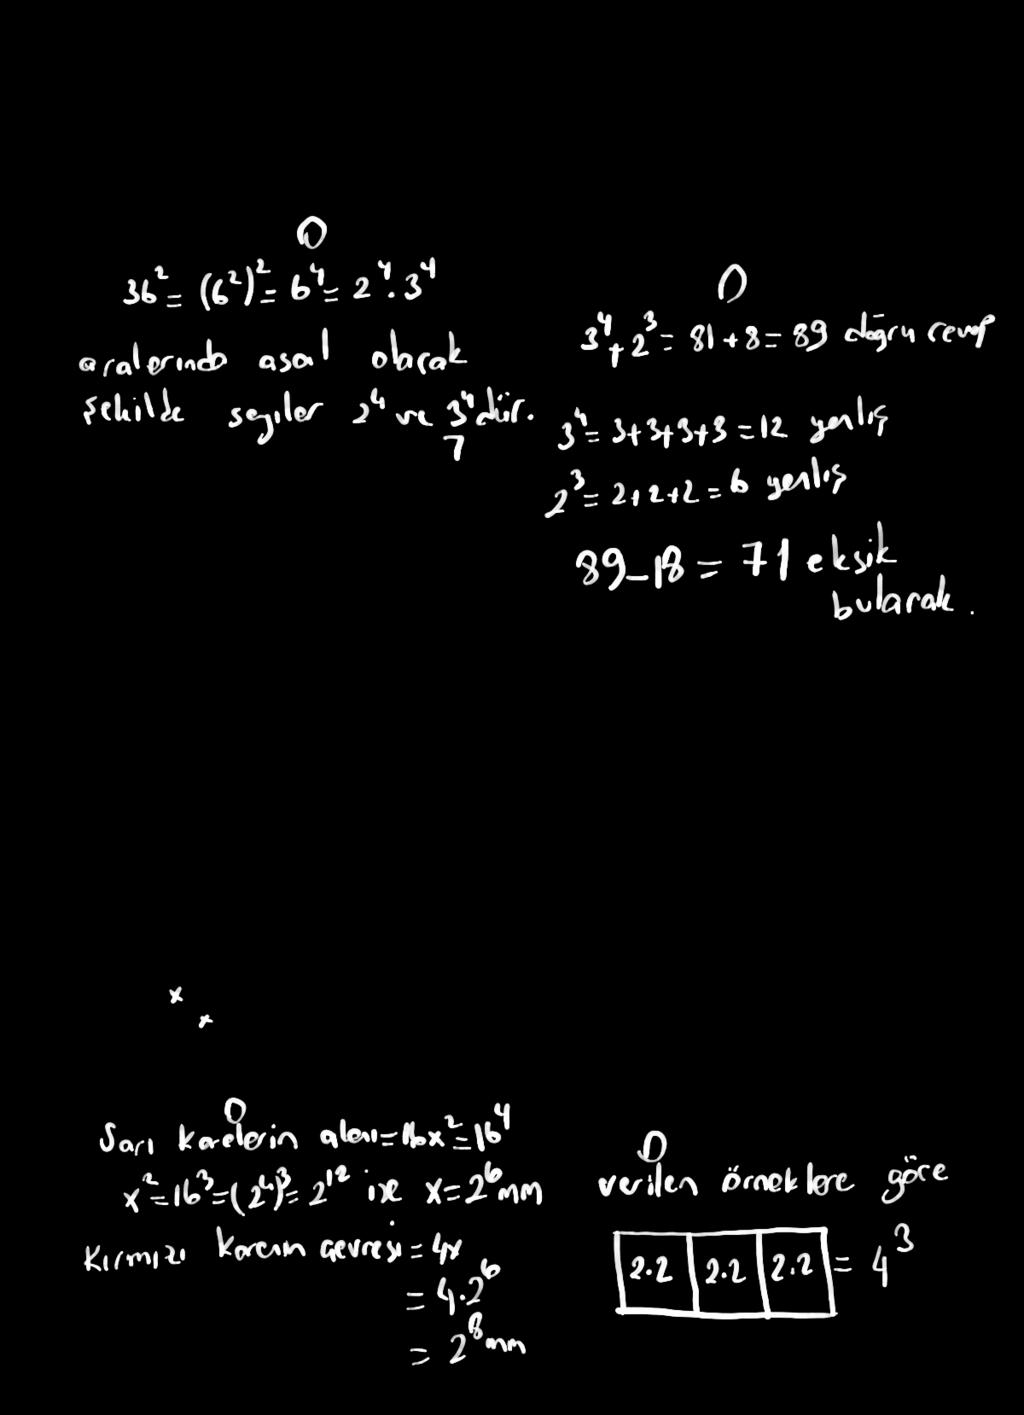 D
36² = (6²)² = 6⁴ = 2⁴.3⁴
aralarında asal olacak
şekilde sayılar 2⁴ ve 3⁴ dür.
7
D
3⁴ + 2³ = 81 + 8 = 89 doğru cevap
3⁴ = 3+3+3+3 = 12 yanlış
2³ = 2+2+2 = 6 yanlış
89 - 18 = 71 eksik
bularak.
x
x
D
Sarı karelerin alanı = 16x² = 16⁴
x² = 16³ = (2⁴)³ = 2¹² ise x = 2⁶ mm
Kırmızı karenin çevresi = 4x
= 4.2⁶
= 2⁸ mm
D
verilen örneklere göre
2.2 2.2 2.2 = 4³